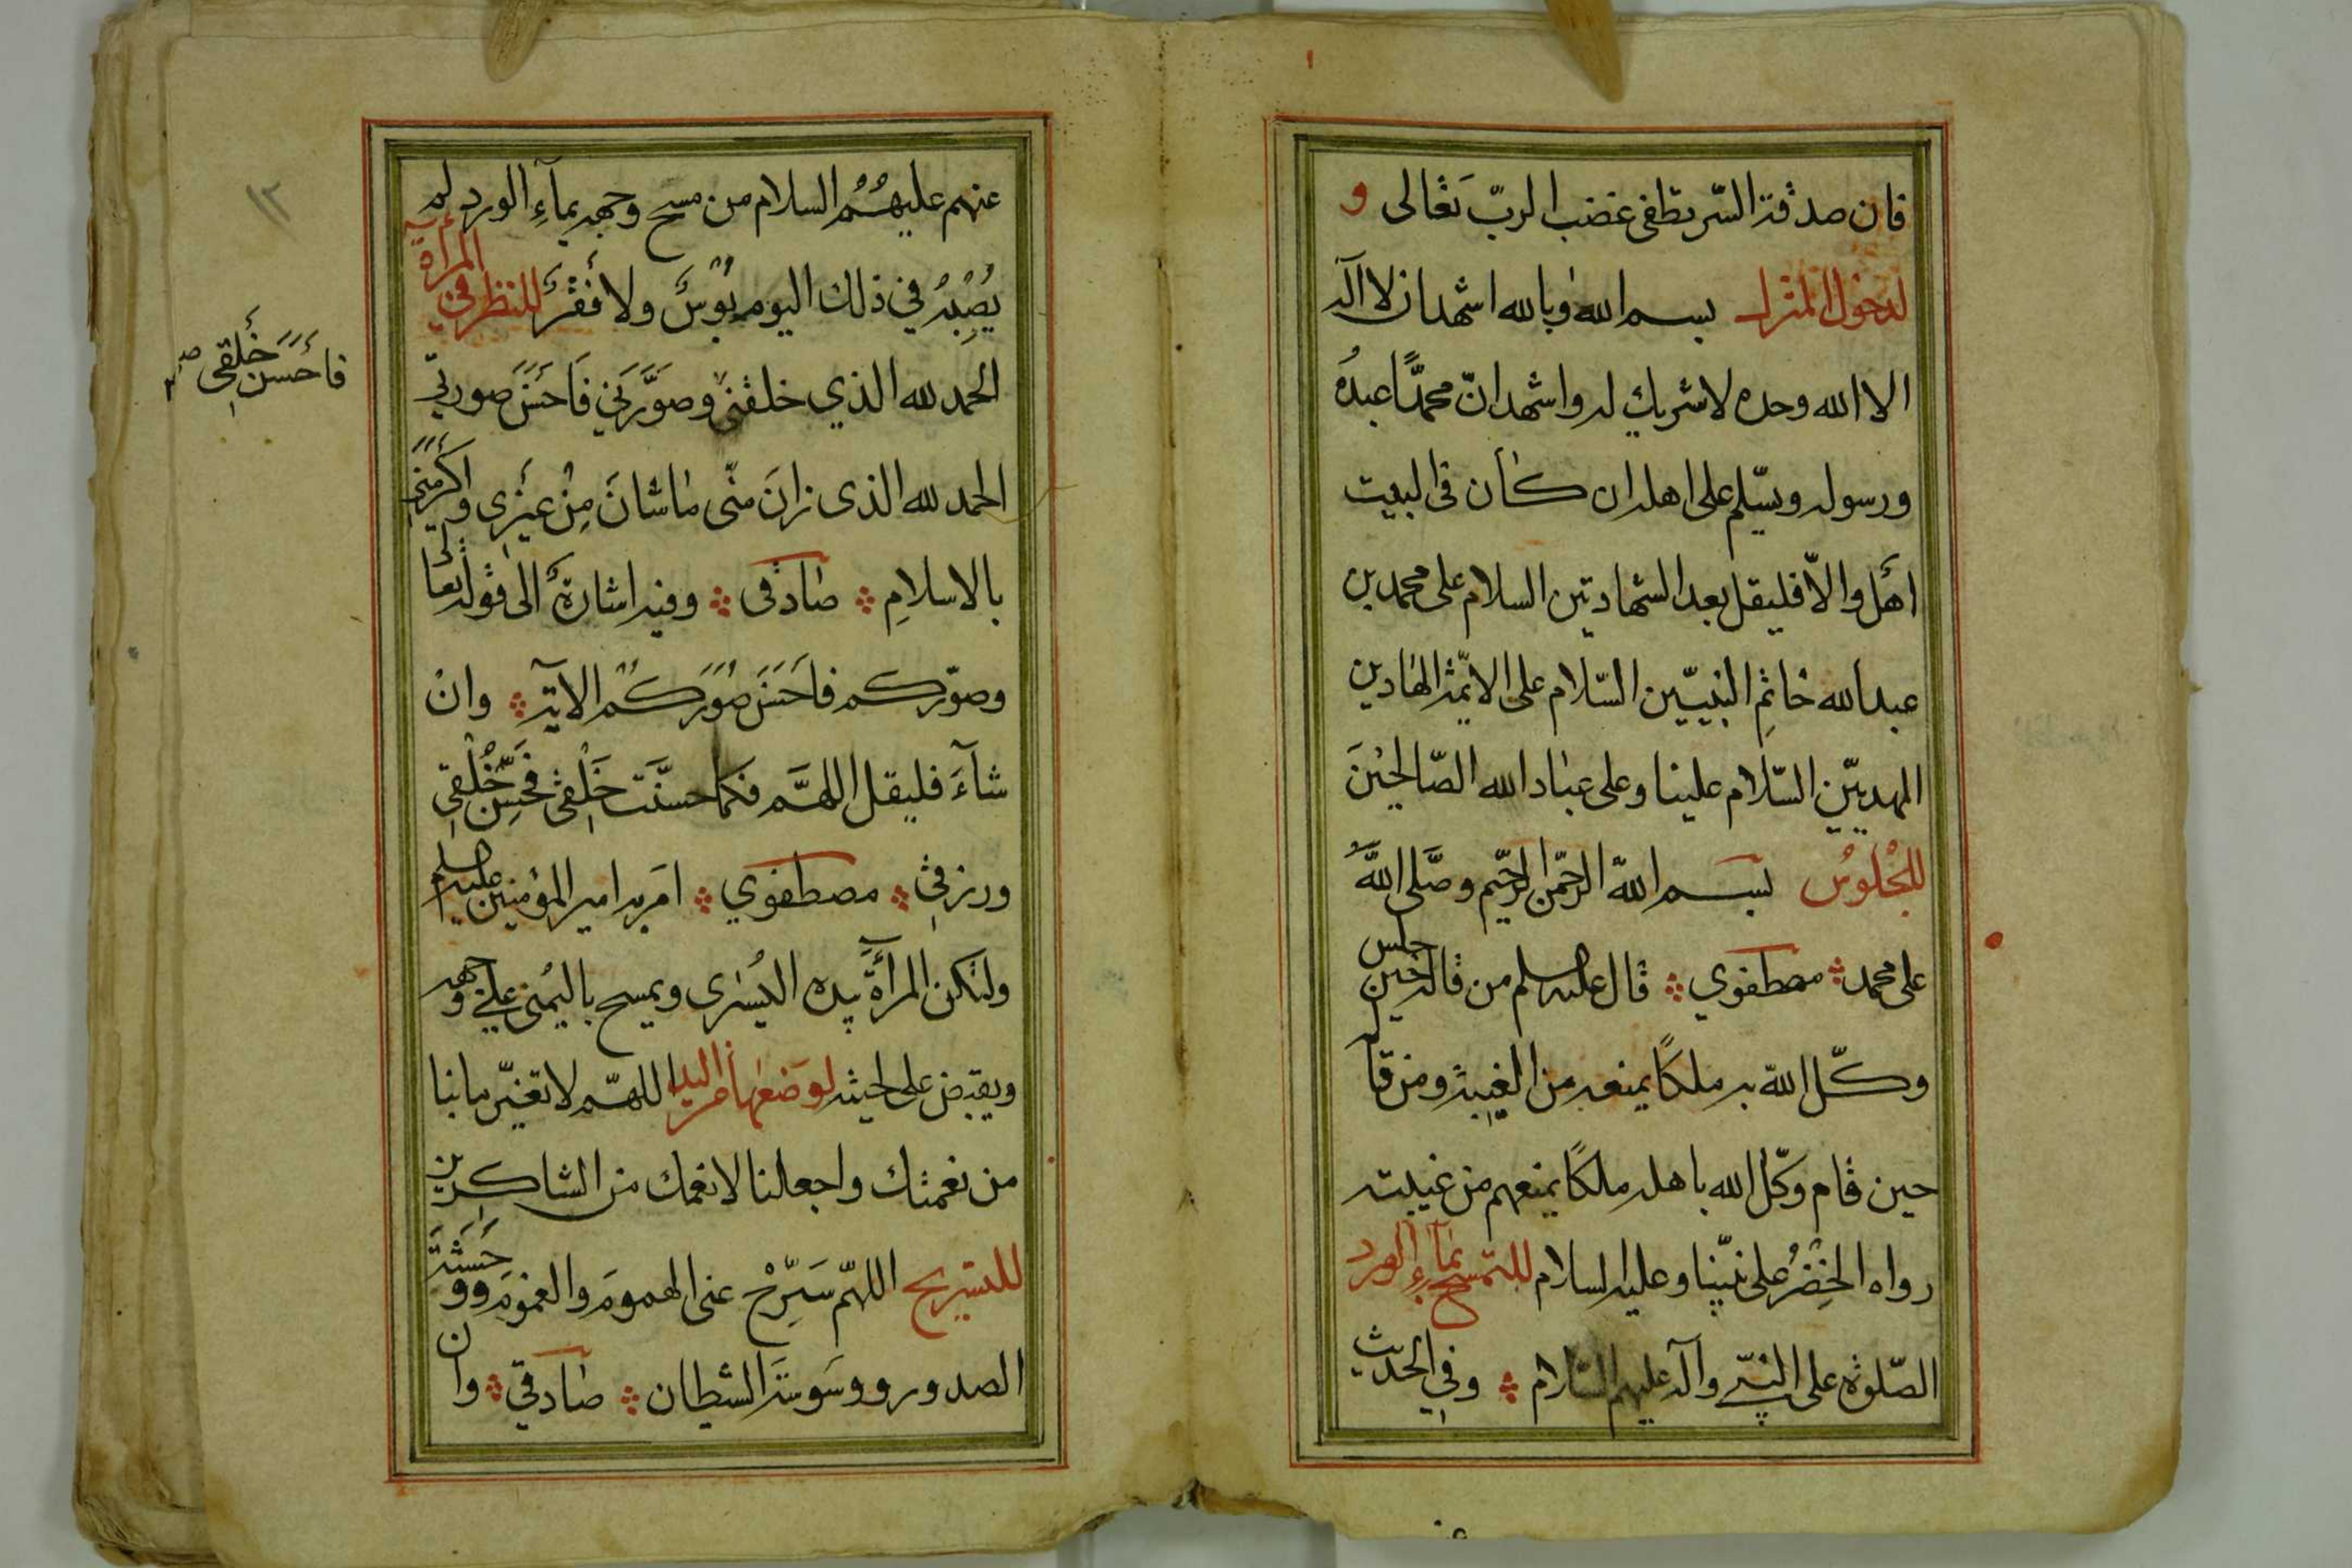 فان صدقة السّر تطفی غضب الربّ تَعٰالى و
لدخول المنزل بسم الله وبالله اشهد ان لا اله
الا الله وحده لا شريك له واشهد انّ محمدًا عبدُه
ورسوله ويسّلم على اهله ان كٰان فى البيت
اَهل والاّ فليقل بعد الشهادتين السلام على محمد بن
عبد الله خٰاتمِ النبيّين السّلام على الائمّة الهٰادين
المهديّين السّلام علينا وعلى عبٰاد الله الصّالحينَ
للجُلوُس بسم اللهّ الرحّمن الرحّيم وصَلّى اللهَُّ
على محمد مصطفوي قٰال عليه السلم من قاله حين جلس
وكّل اللهّ به ملكًا يمنعه من الغيبة ومن قاله
حين قٰام وكّل الله باهله ملكًا يمنعهم من غيبته
رواه الخِضْرُ على نبيّنا وعليه السلام للتمسح بمآءِ الورد
الصّلوة على النبّي وآله عليهم السّلام وفي الحديث
عنهم عليهُمُ السلام من مسح وجهه بمآءِ الورد لم
يُصِبْهُ في ذلك اليوم بُوْسٌ ولا فَقْرٌ للنظر في المرآة
الحمد لله الذي خلقنى وصَوَّرَني فَاَحسَنَ صورتي
الحمد لله الذى زانَ منّى مٰا شٰانَ مِنْ غَيْرِى واَكْرَمَني
بالاسلامِ صٰادقى وفيه اشٰارةٌ الى قوله تعٰا
وصوّركم فاَحَسَنَ صُوَرَكُم الآية وانْ
شآءَ فليقل اللهَّم فكما حسنَّت خَلْقى فحَسِّن خُلْقى
ورزقي مصطفوي امر به امير المؤمنين عليه السلم
ولتكن المرآةُ بيده اليُسْرى ويمسح باليُمنى على وجهه
ويقبض على لحيته لوضعها من اليد اللهّم لا تغيّر ما بنا
من نعمتك واجعلنا لانعمك من الشاكرين
للتسريح اللهّم سَرِّحْ عنى الهمومَ والغمومَ ووحشَةَ
الصدور ووسَوسَةَ الشيطان صٰادقي وان
فاَحَسَنَ خَلقِى
١٣